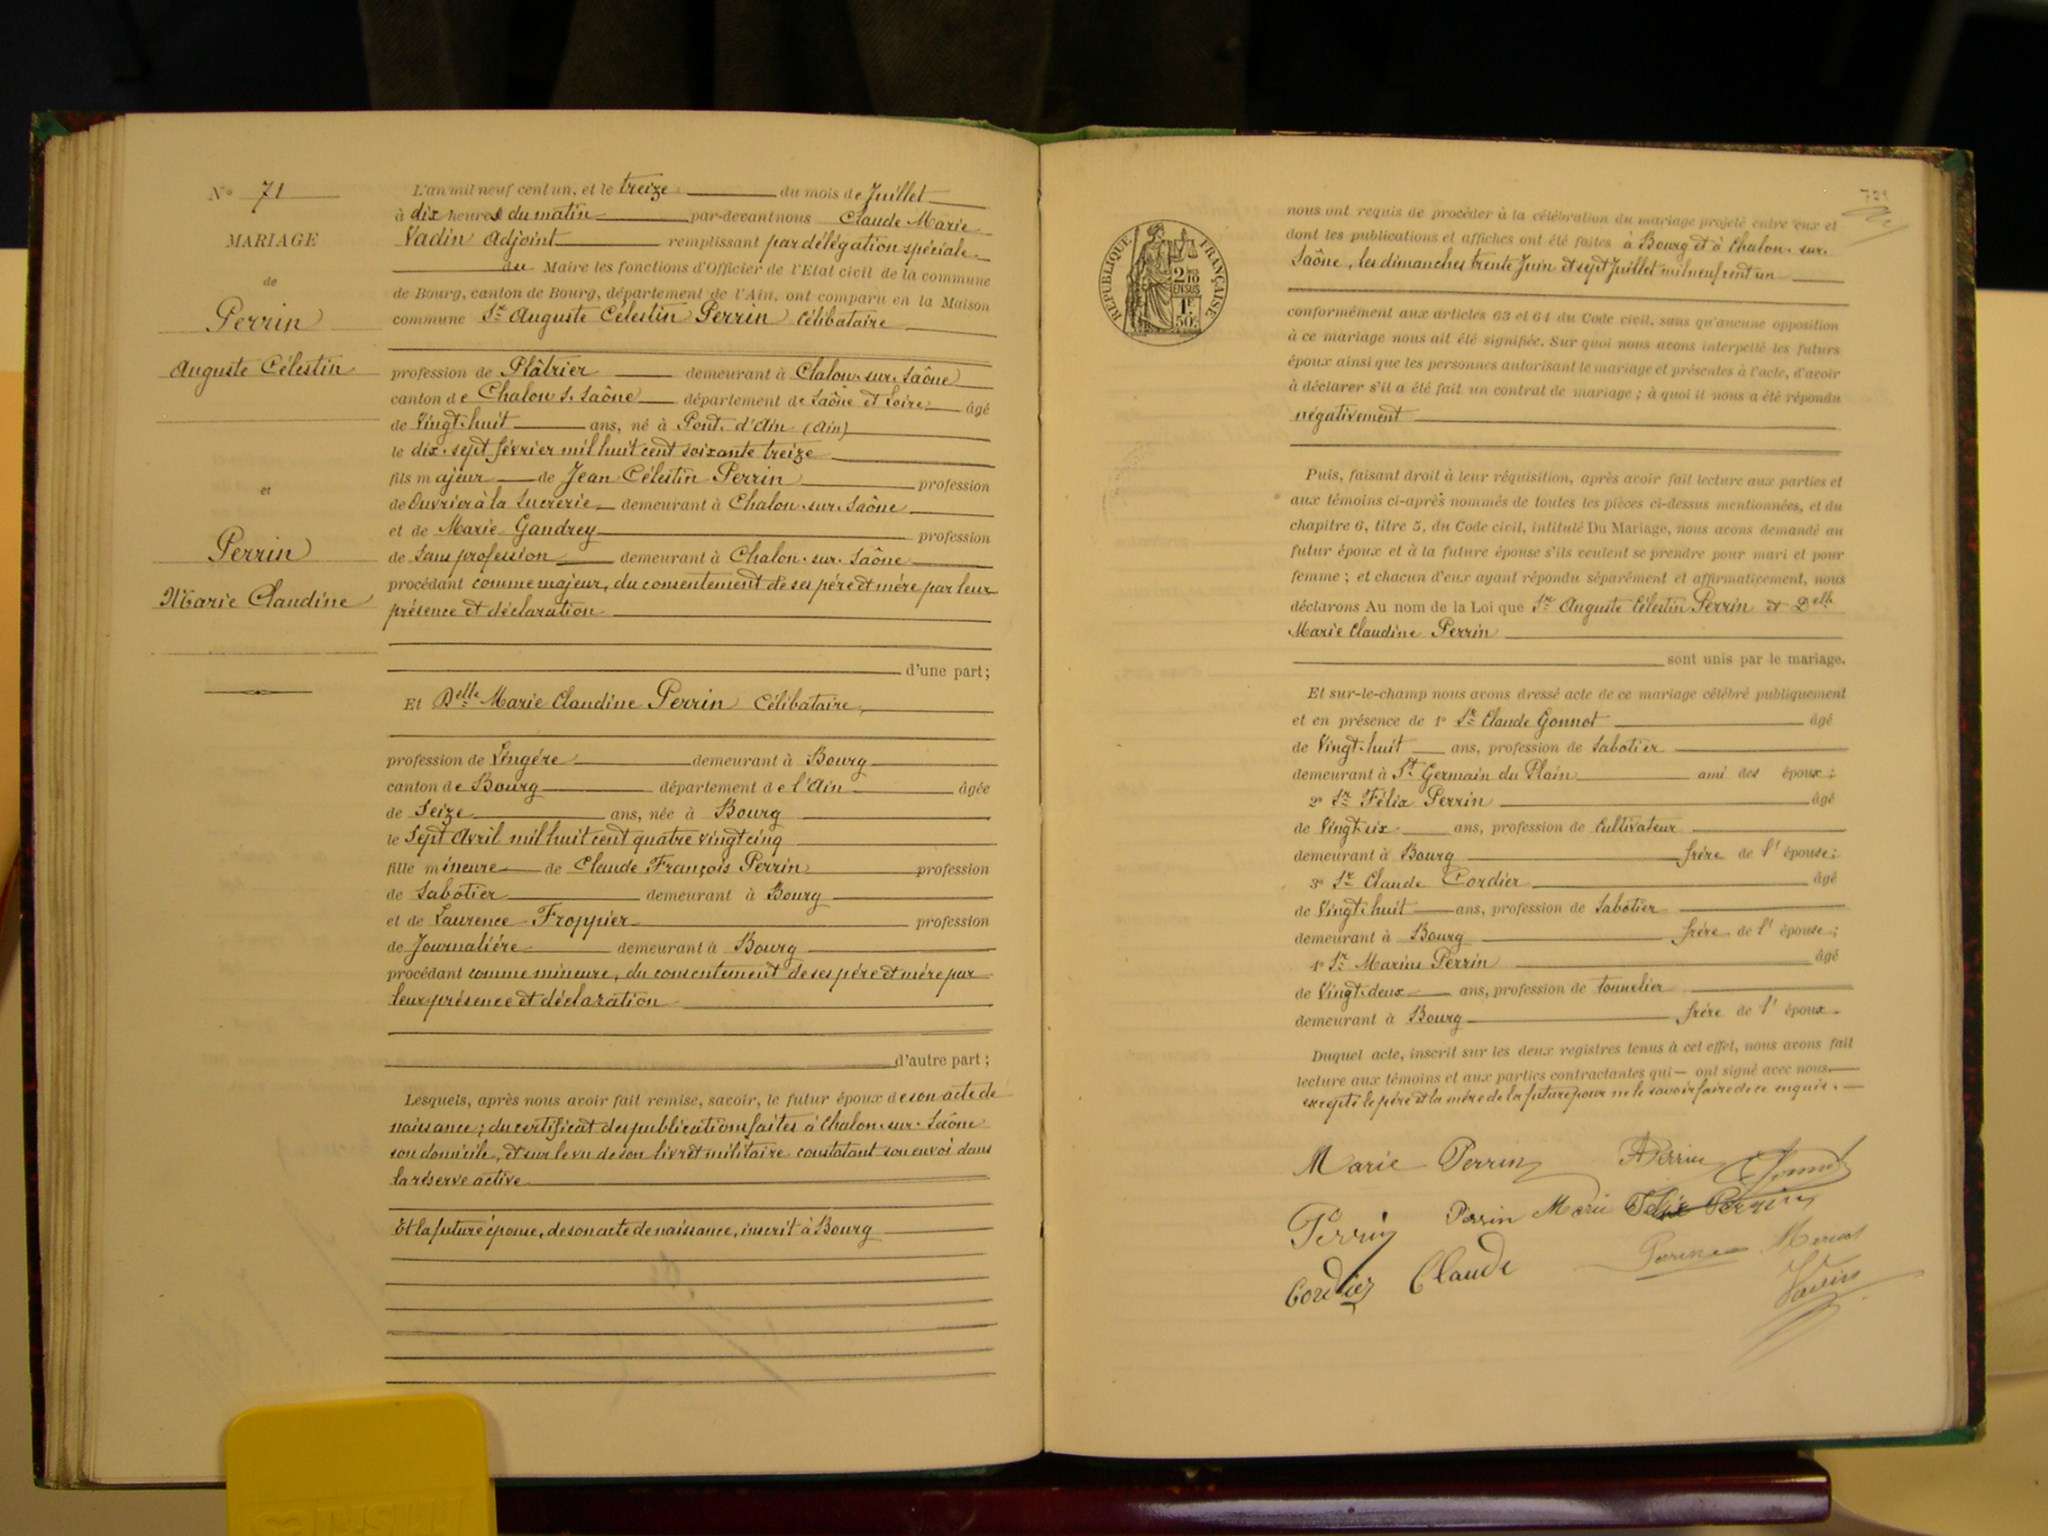 N° 71
MARIAGE
de
Perrin
Auguste Célestin
et
Perrin
Marie Claudine
L'an mil neuf cent un, et le treize du mois de Juillet
à dix heures du matin par-devant nous Claude Marie
Vadin Adjoint remplissant par délégation spéciale
du Maire les fonctions d'Officier de l'Etat civil de la commune
de Bourg, canton de Bourg, département de l'Ain, ont comparu en la Maison
commune Sr Auguste Célestin Perrin Célibataire
profession de Plâtrier demeurant à Chalon-sur-Saône
canton de Chalon S. Saône département de Saône et Loire âgé
de Vingt-huit ans, né à Pont-d'Ain (Ain)
le dix-sept février mil huit cent soixante treize
fils majeur de Jean Célestin Perrin profession
de Ouvrier à la Sucrerie demeurant à Chalon-sur-Saône
et de Marie Gandrey profession
de Sans profession demeurant à Chalon-sur-Saône
procédant comme majeur, du consentement de ses père et mère par leur
présence et déclaration
d'une part;
Et Delle Marie Claudine Perrin Célibataire
profession de Lingère demeurant à Bourg
canton de Bourg département de l'Ain âgée
de Seize ans, née à Bourg
le Sept Avril mil huit cent quatre vingt cinq
fille mineure de Claude François Perrin profession
de Sabotier demeurant à Bourg
et de Laurence Froppier profession
de Journalière demeurant à Bourg
procédant comme mineure, du consentement de ses père et mère par
leur présence et déclaration
d'autre part;
Lesquels, après nous avoir fait remise, savoir, le futur époux de son acte de
naissance; du certificat des publications faites à Chalon-sur-Saône
son domicile, et sur le vu de son livret militaire constatant son envoi dans
la réserve active
Et la future épouse, de son acte de naissance, inscrit à Bourg
RÉPUBLIQUE FRANÇAISE
2/10 EN SUS
1F 50c
nous ont requis de procéder à la célébration du mariage projeté entre eux et
dont les publications et affiches ont été faites à Bourg et à Chalon-sur-
Saône, les dimanches trente Juin et sept Juillet mil neuf cent un
conformément aux articles 63 et 64 du Code civil, sans qu'aucune opposition
à ce mariage nous ait été signifiée. Sur quoi nous avons interpellé les futurs
époux ainsi que les personnes autorisant le mariage et présentes à l'acte, d'avoir
à déclarer s'il a été fait un contrat de mariage; à quoi il nous a été répondu
négativement
Puis, faisant droit à leur réquisition, après avoir fait lecture aux parties et
aux témoins ci-après nommés de toutes les pièces ci-dessus mentionnées, et du
chapitre 6, titre 5, du Code civil, intitulé Du Mariage, nous avons demandé au
futur époux et à la future épouse s'ils veulent se prendre pour mari et pour
femme; et chacun d'eux ayant répondu séparément et affirmativement, nous
déclarons Au nom de la Loi que Sr Auguste Célestin Perrin et Delle
Marie Claudine Perrin
sont unis par le mariage.
Et sur-le-champ nous avons dressé acte de ce mariage célébré publiquement
et en présence de 1° Sr Claude Gonnot âgé
de Vingt-huit ans, profession de Sabotier
demeurant à St Germain du Plain ami des époux;
2° Sr Félix Perrin âgé
de Vingt-six ans, profession de Cultivateur
demeurant à Bourg frère de l'épouse;
3° Sr Claude Cordier âgé
de Vingt-huit ans, profession de Sabotier
demeurant à Bourg frère de l'épouse;
4° Sr Marius Perrin âgé
de Vingt-deux ans, profession de tonnelier
demeurant à Bourg frère de l'époux.
Duquel acte, inscrit sur les deux registres tenus à cet effet, nous avons fait
lecture aux témoins et aux parties contractantes qui ont signé avec nous
excepté le père et la mère de la future pour ne le savoir faire de ce enquis.
Marie Perrin APerrin CGonnot
Perrin Perrin Marie Félix Perrin
Cordier Claude Perrin
Vadin